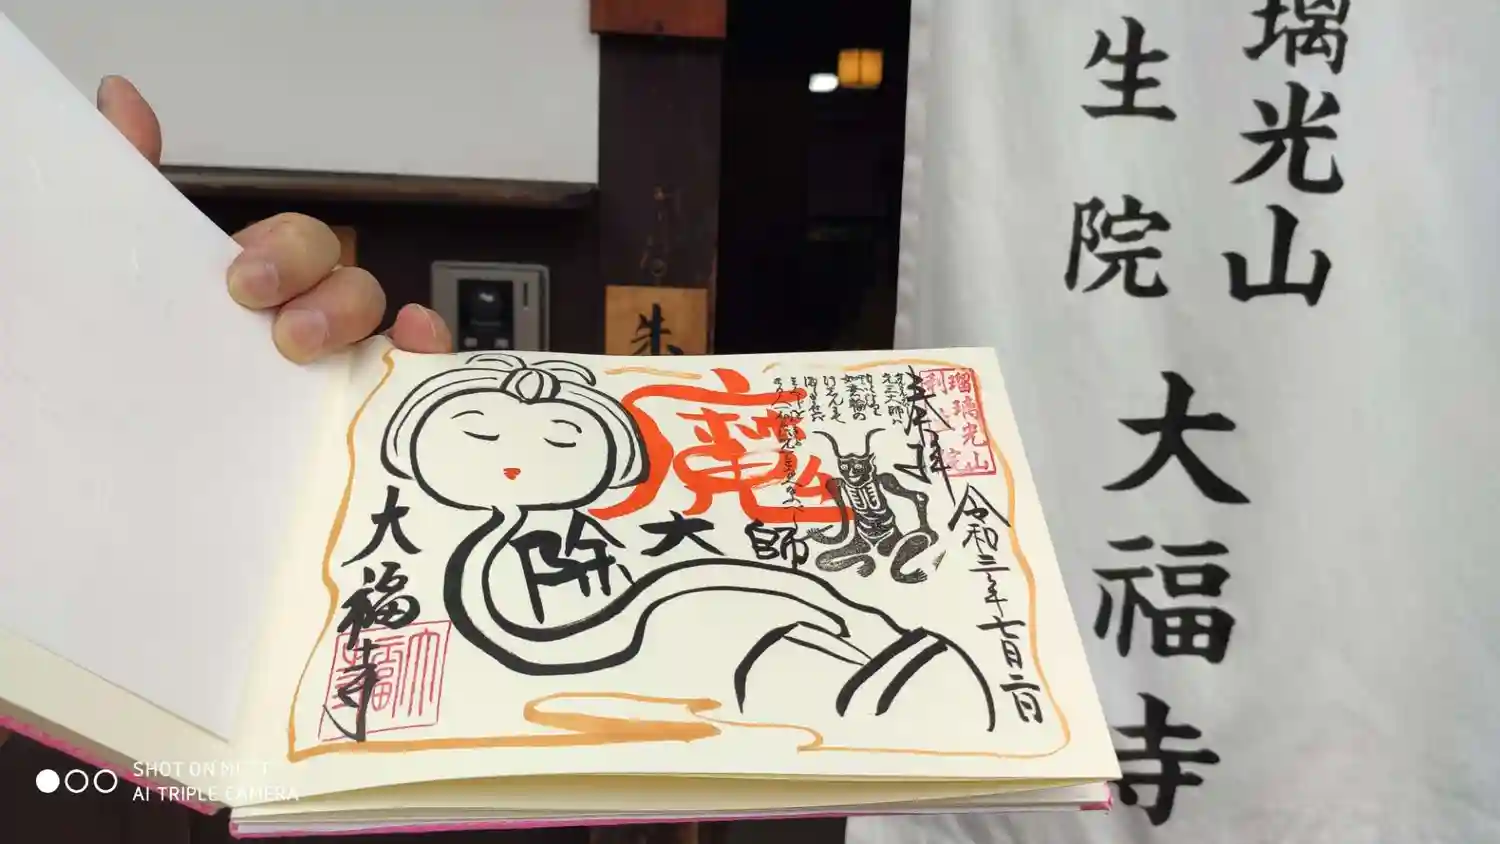 瑠璃光山
利生院
奉拝
令和三年七月二日
魔
除大師
大福寺
瑠璃光山
生院
大福寺
朱
SHOT ON MI 9T
AI TRIPLE CAMERA